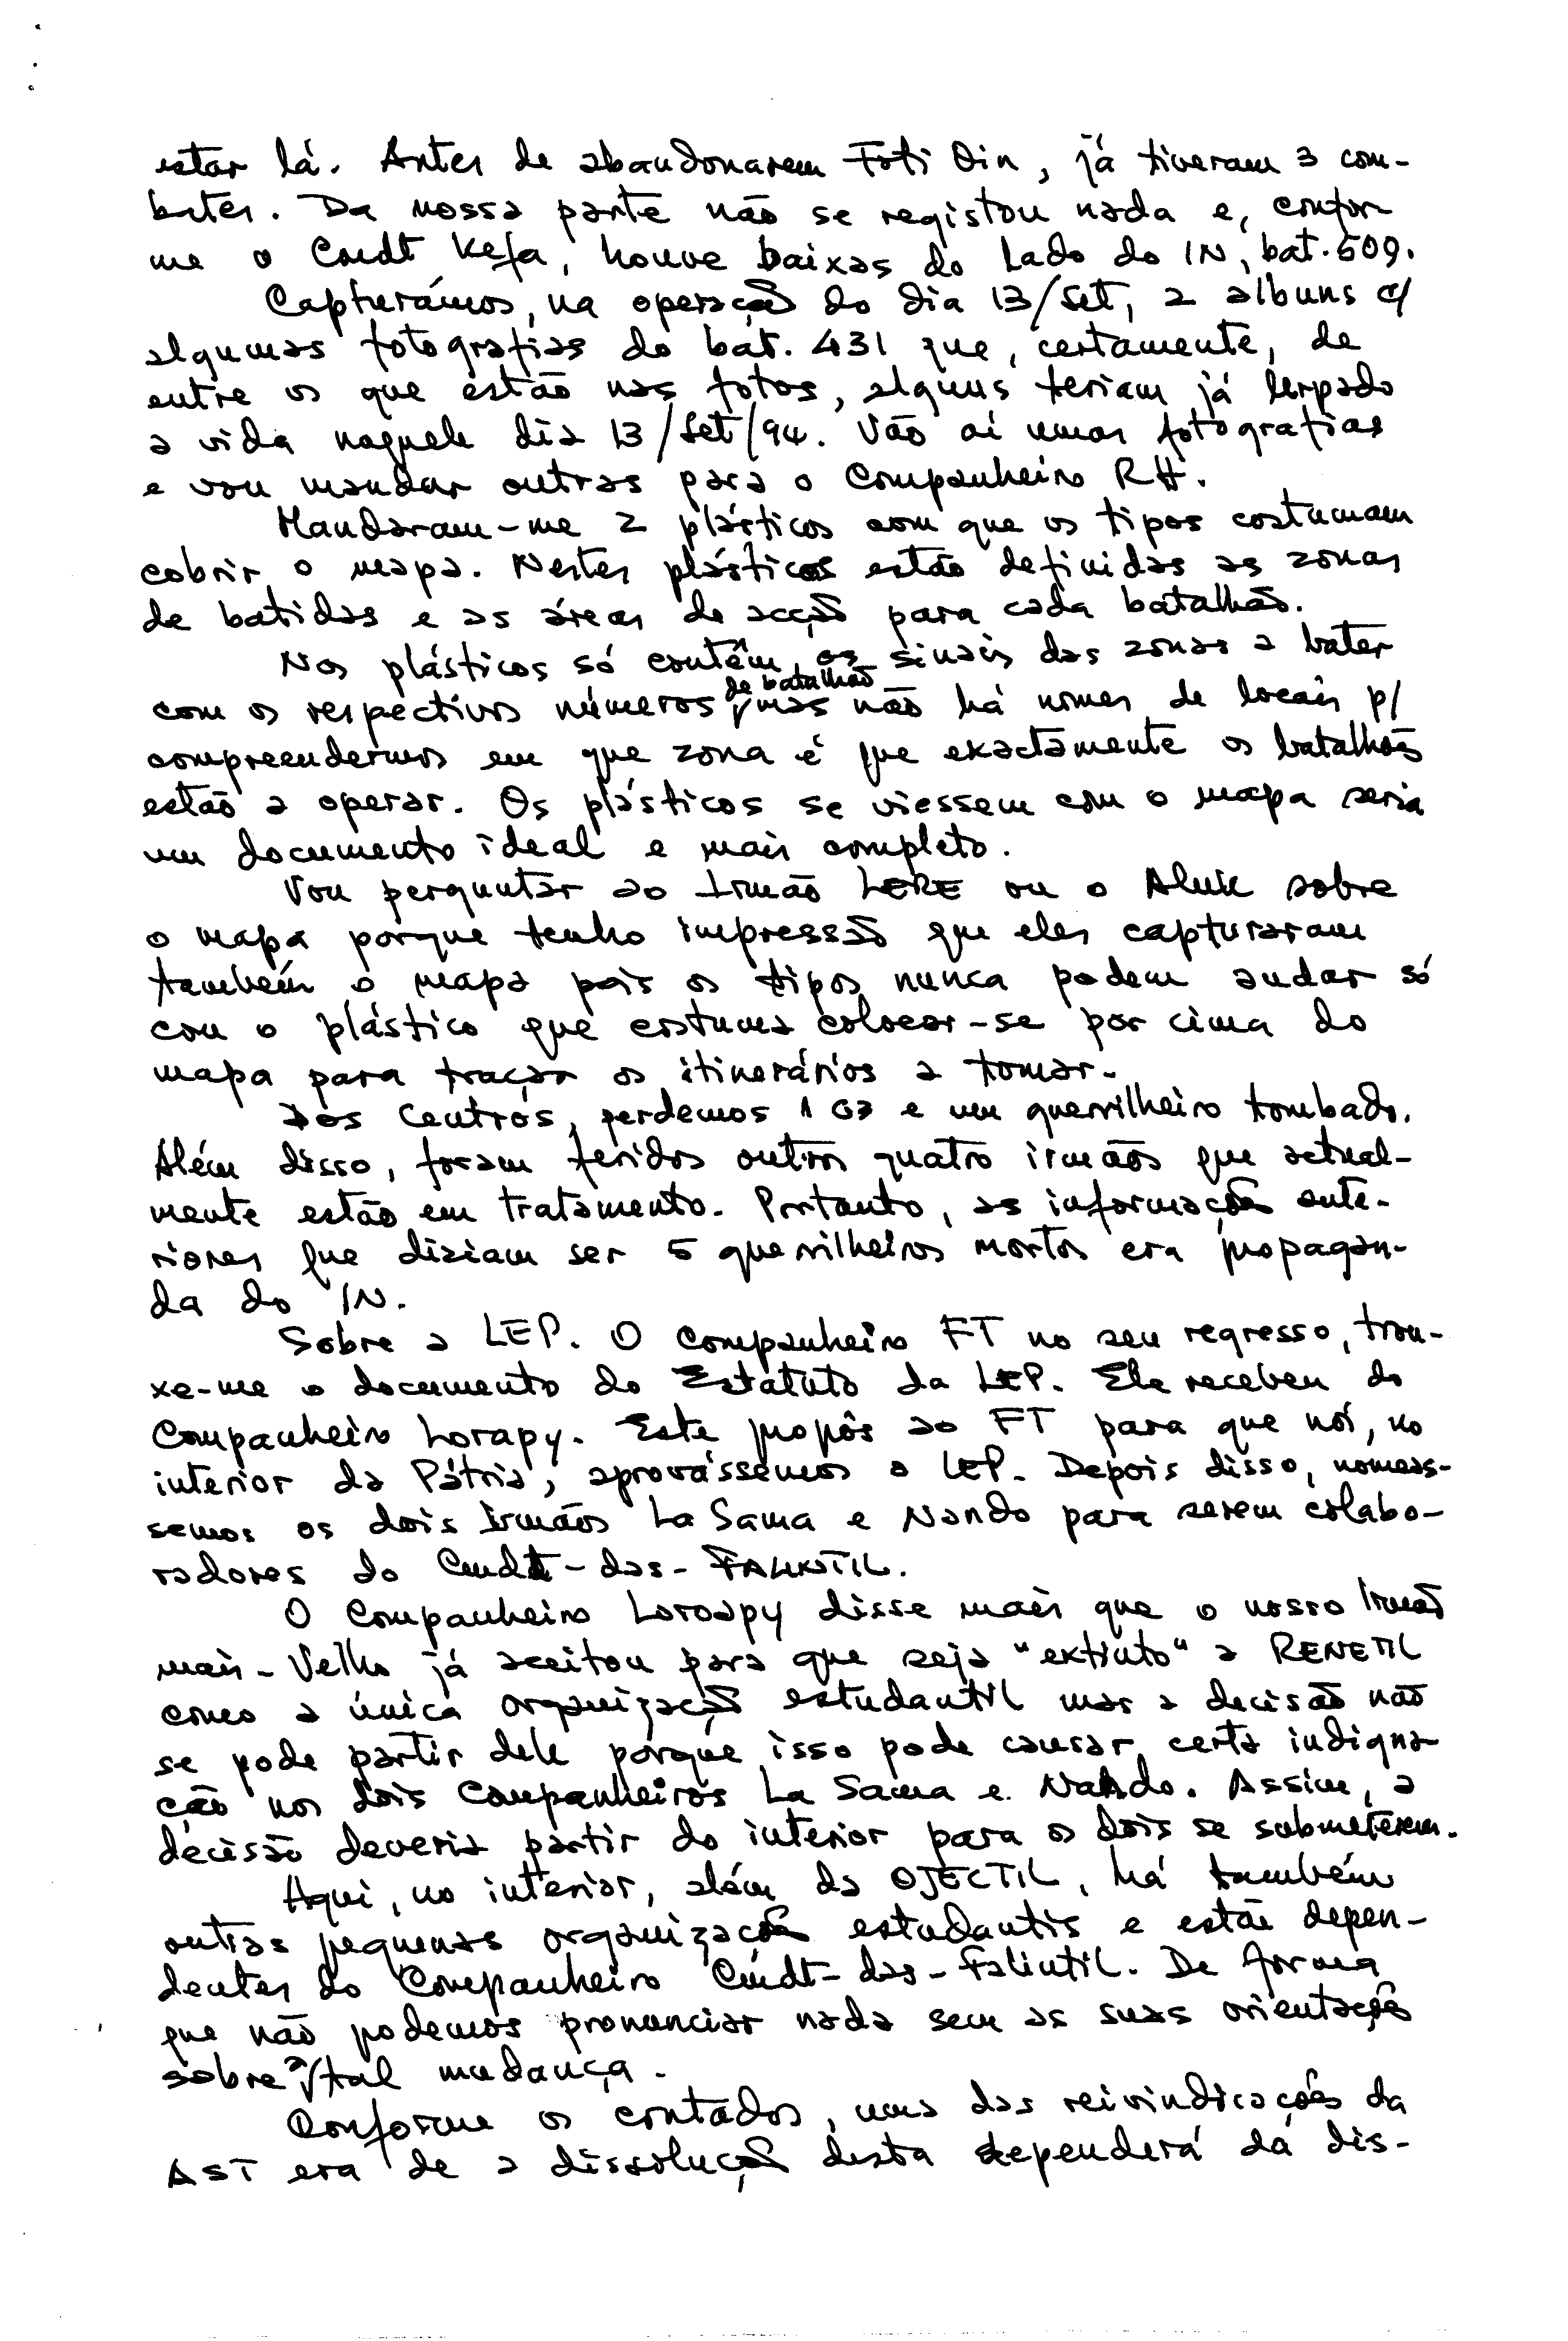 estar lá. Antes de abandonarem Foti Oin, já tiveram 3 com-
bates. Da nossa parte não se registou nada e, confor-
me o Cmdt Kefa, houve baixas do lado do IN, bat. 509.
Capturámos, na operação do dia 13/Set, 2 albuns c/
algumas fotografias do bat. 431 que, certamente, de
entre os que estão nas fotos, alguns teriam já lerpado
a vida naquele dia 13/Set/94. Vão aí umas fotografias
e vou mandar outras para o Companheiro RH.
Mandaram-me 2 plásticos com que os tipos costumam
cobrir o mapa. Nestes plásticos estão definidas as zonas
de batidas e as áreas de acção para cada batalhão.
Nos plásticos só contêm os sinais das zonas a bater
com os respectivos números de batalhão, mas não há nomes de locais p/
compreendermos em que zona é que exactamente os batalhões
estão a operar. Os plásticos se viessem com o mapa seria
um documento ideal e mais completo.
Vou perguntar ao Irmão LERE ou o Aluk sobre
o mapa porque tenho impressão que eles capturaram
também o mapa pois os tipos nunca podem andar só
com o plástico que costuma colocar-se por cima do
mapa para traçar os itinerários a tomar.
Dos Centros, perdemos 1 G3 e um guerrilheiro tombado.
Além disso, foram feridos outros quatro irmãos que actual-
mente estão em tratamento. Portanto, as informações ante-
riores que diziam ser 5 guerrilheiros mortos era propagan-
da do IN.
Sobre a LEP. O Companheiro FT no seu regresso, trou-
xe-me o documento do Estatuto da LEP. Ele recebeu do
Companheiro Lorapy. Este propôs ao FT para que nós, no
interior da Pátria, aprovássemos a LEP. Depois disso, nomeás-
semos os dois Irmãos La Sama e Nando para serem colabo-
radores do Cmdt-das-FALINTIL.
O Companheiro Loroapy disse mais que o nosso Irmão
mais-Velho já aceitou para que seja "extinto" a RENETIL
como a única organização estudantil mas a decisão não
se pode partir dele porque isso pode causar certa indigna-
ção nos dois Companheiros La Sama e Nando. Assim, a
decisão deveria partir do interior para os dois se submeterem.
Aqui, no interior, além da OJECTIL, há também
outras pequenas organizações estudantis e estão depen-
dentes do Companheiro Cmdt-das-Falintil. De forma
que não podemos pronunciar nada sem as suas orientações
sobre a tal mudança.
Conforme os contados, uma das reivindicações da
AST era de a dissolução desta dependerá da dis-